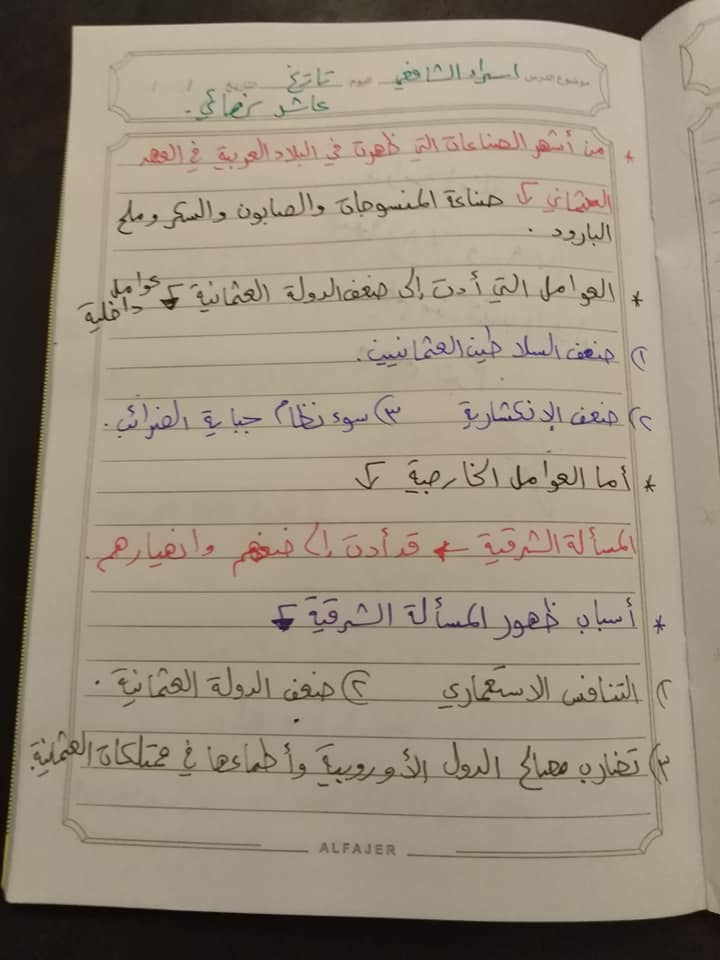 موضوع الدرس اسراء الشافعي اليوم تاريخ التاريخ / /
عاشر نهائي.
* من أشهر الصناعات التي ظهرت في البلاد العربية في العهد
العثماني ↓ صناعة المنسوجات والصابون والسكر وملح
البارود.
* العوامل التي أدت إلى ضعف الدولة العثمانية ↓ عوامل
داخلية
١) ضعف السلاطين العثمانيين.
٢) ضعف الإنكشارية ٣) سوء نظام جباية الضرائب.
* أما العوامل الخارجية ↓
المسألة الشرقية ← قد أدت إلى ضعفهم وانهيارهم.
* أسباب ظهور المسألة الشرقية ↓
١) التنافس الاستعماري ٢) ضعف الدولة العثمانية.
٣) تضارب مصالح الدول الأوروبية وأطماعها في ممتلكات العثمانية.
ALFAJER